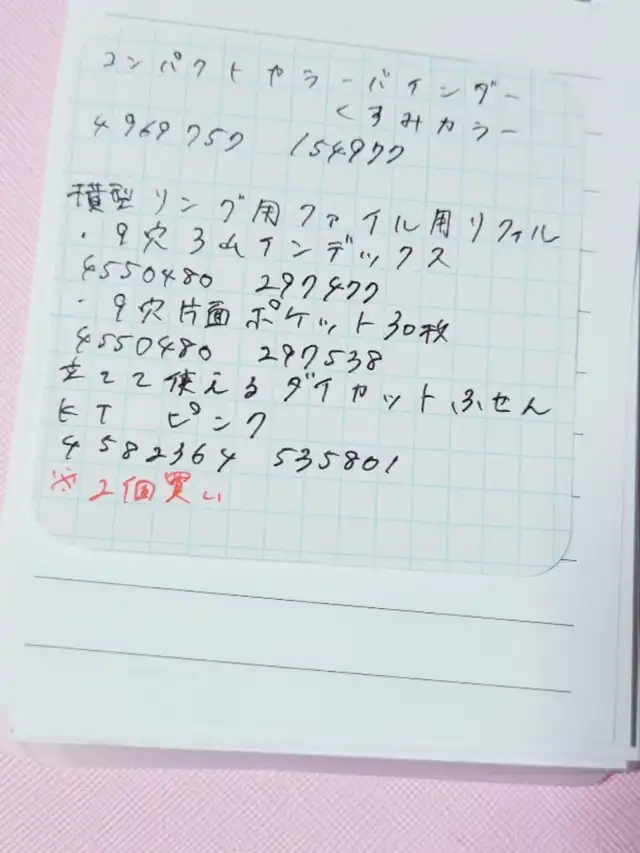 コンパクトカラーバインダー
くすみカラー
4969757 154977
横型リング用ファイル用リフィル
・9穴3ムインデックス
4550480 297477
・9穴片面ポケット30枚
4550480 297538
立てて使えるダイカットふせん
KT ピンク
4582364 535801
※2個買い